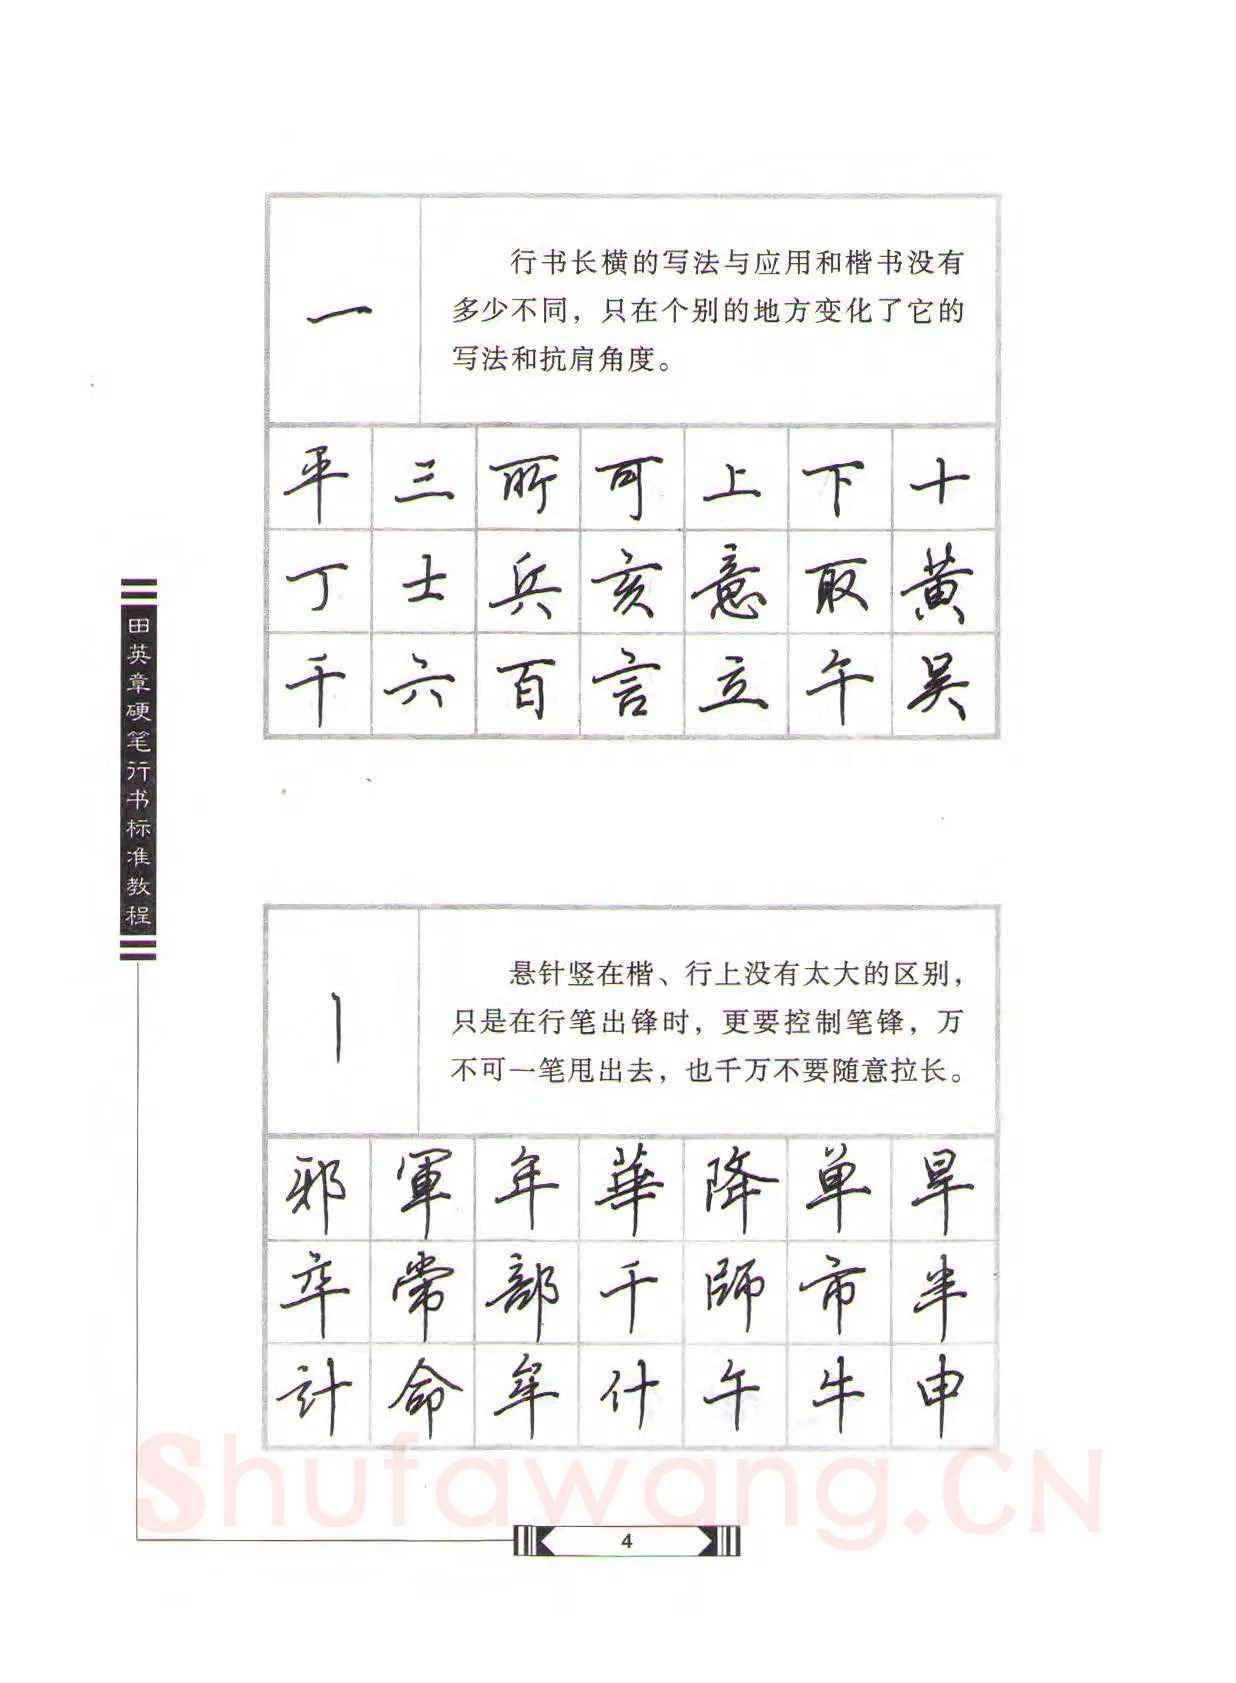 一
行书长横的写法与应用和楷书没有
多少不同，只在个别的地方变化了它的
写法和抗肩角度。
平 三 所 可 上 下 十
丁 士 兵 亥 意 取 黄
千 六 百 言 立 午 吴
田英章硬笔行书标准教程
丨
悬针竖在楷、行上没有太大的区别，
只是在行笔出锋时，更要控制笔锋，万
不可一笔甩出去，也千万不要随意拉长。
邪 軍 年 華 降 单 早
卒 常 部 千 師 市 半
計 命 牟 什 午 牛 申
Shufawang.CN
4